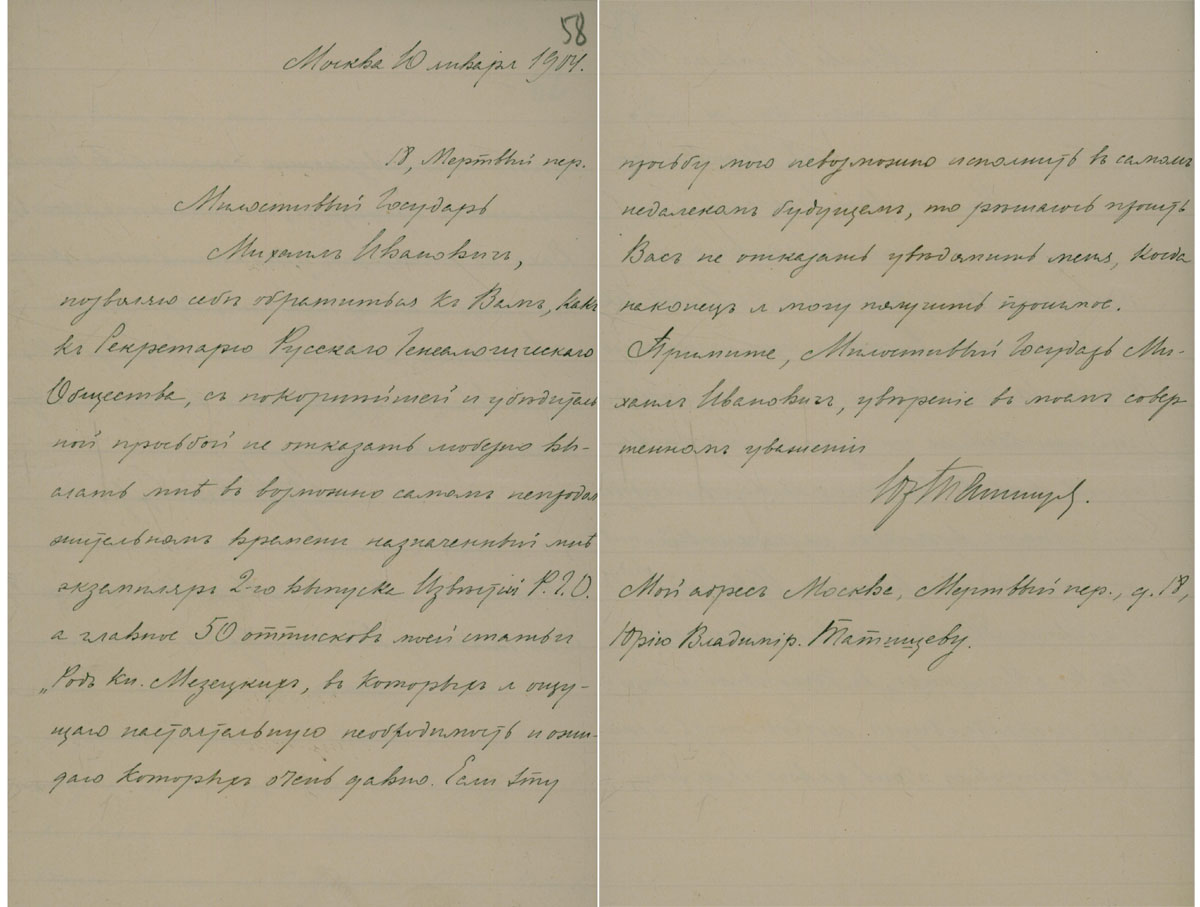 58
Москва 10 января 1904.
18, Мертвый пер.
Милостивый Государь
Михаилъ Ивановичъ,
позволяю себѣ обратиться къ Вамъ, какъ
къ Секретарю Русскаго Генеалогическаго
Общества, съ покорнѣйшей и убѣдитель
ной просьбой не отказать любезно вы-
слать мнѣ въ возможно самомъ непродол
жительномъ времени назначенный мнѣ
экземпляръ 2-го выпуска Извѣстій Р.Г.О.
а главное 50 оттисковъ моей статьи
„Родъ Кн. Мезецкихъ, въ которыхъ я ощу-
щаю настоятельную необходимость и ожи-
даю которыхъ очень давно. Если эту
просьбу мою невозможно исполнить въ самомъ
недалекомъ будущемъ, то рѣшаюсь просить
Васъ не отказать увѣдомить меня, когда
наконецъ я могу получить просимое.
Примите, Милостивый Государь Ми-
хаилъ Ивановичъ, увѣреніе въ моемъ совер
шенномъ уваженіи
Юр Татищев.
Мой адресъ Москва, Мертвый пер., д. 18,
Юрію Владимір. Татищеву.